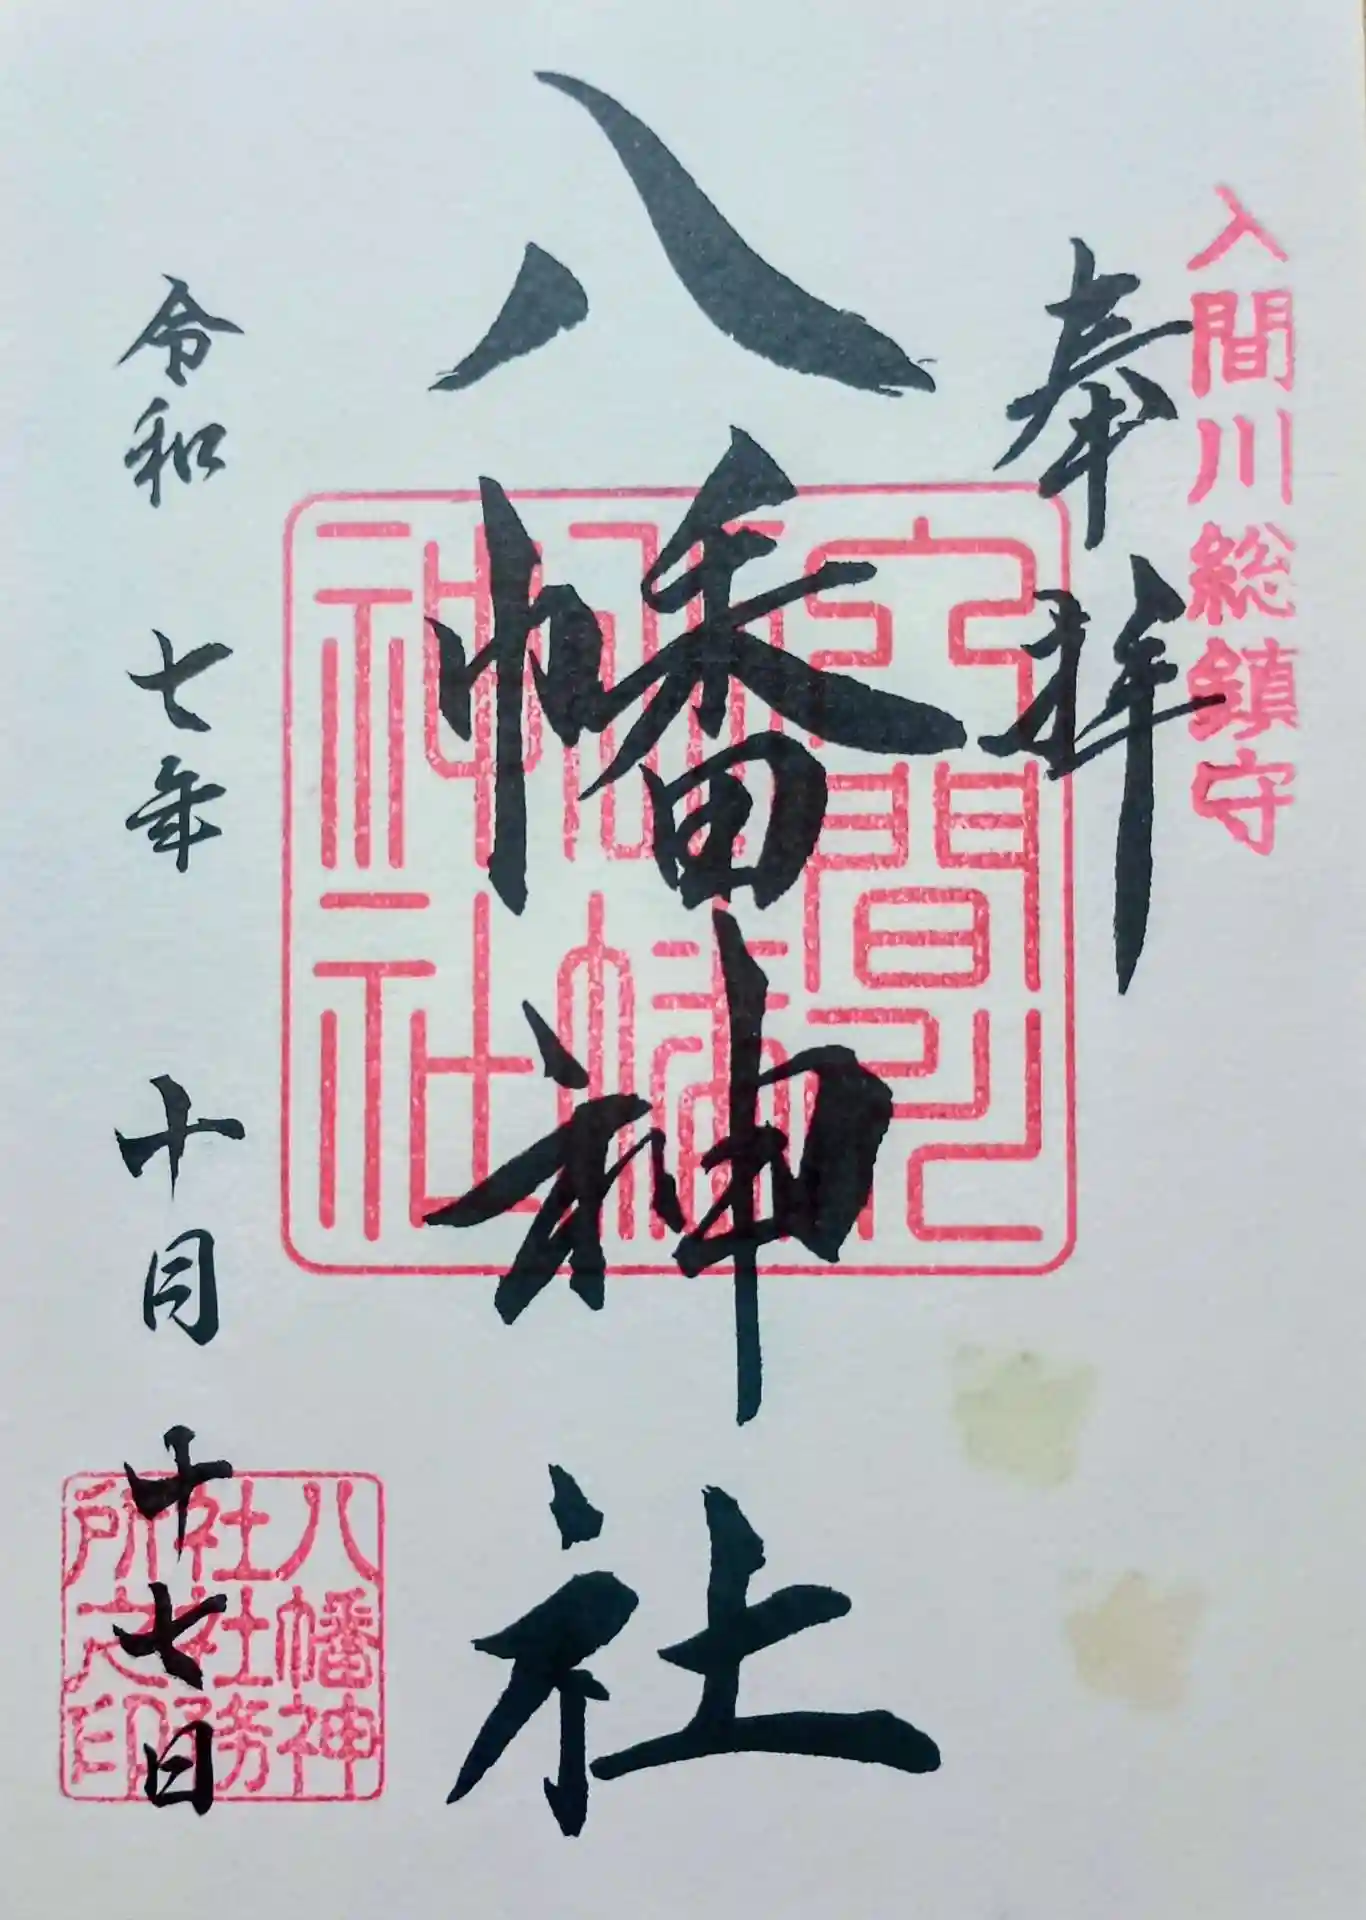 入間川総鎮守
奉拝
八幡神社
令和七年十月十七日
八幡神
社社務
所之印
神社